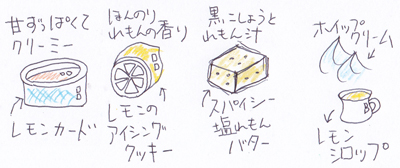 甘ずっぱくて
クリーミー
レモンカード
ほんのり
れもんの香り
レモンの
アイシング
クッキー
黒こしょうと
れもん汁
スパイシー
塩れもん
バター
ホイップ
クリーム
レモン
シロップ